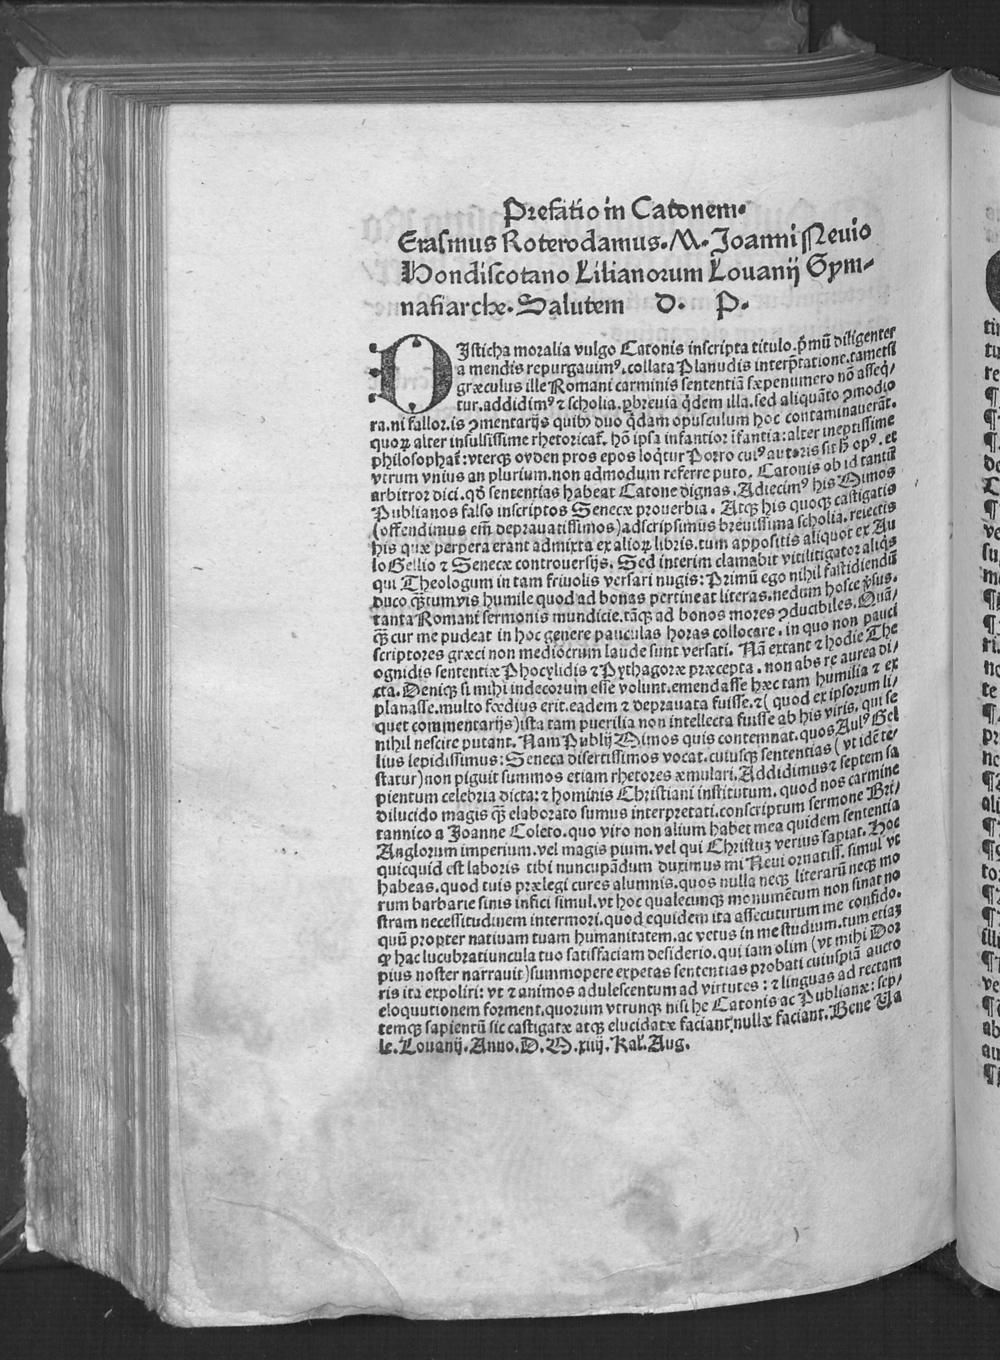 Prefatio in Catonem.
Erasmus Roterodamus. M. Joanni Neuio
Hondiscotano Lilianorum Louanij Gym-
nasiarche. Salutem D. P.
DIsticha moralia vulgo Catonis inscripta titulo. p̃mũ diligenter
a mendis repurgauimꝰ. collata Planudis interp̃tatione. tametsi
græculus ille Romani carminis sententiã sæpenumero nõ asseq̃/
tur. addidimꝰ ⁊ scholia. ꝑbreuia q̃dem illa. sed aliquãto ꝯmodio
ra. ni fallor. is ꝯmentarijs quibꝰ duo q̃dam opusculum hoc contaminauerãt.
quoꝝ alter insulsissime rhetoricat̃. hõ ipsa infantior ĩfantia: alter ineptissime
philosophat̃: vterq; ovden pros epos loq̃tur Porro cuiꝰ autoris sit h̃ opꝰ. et
vtrum vnius an plurium. non admodum referre puto. Catonis ob id tantũ
arbitror dici. qđ sententias habeat Catone dignas. Adiecimꝰ his Mimos
Publianos falso inscriptos Senecæ prouerbia. Atq; his quoq; castigatis
(offendimus em̃ deprauatissimos) adscripsimus breuissima scholia. reiectis
his quæ perpera erant admixta ex alioꝝ libris. tum appositis aliquot ex Au
lo Gellio ⁊ Senecæ controuersijs. Sed interim clamabit vitilitigator aliq̃s
qui Theologum in tam friuolis versari nugis: Primũ ego nihil fastidiendũ
duco q̃tumvis humile quod ad bonas pertineat literas. nedum hosce ṽsus.
tanta Romani sermonis mundicie. tãq; ad bonos mores ꝯducibiles. Quã/
q̃ cur me pudeat in hoc genere pauculas horas collocare. in quo non pauci
scriptores græci non mediocrum laude sunt versati. Nã extant ⁊ hodie The
ognidis sententiæ Phocylidis ⁊ Pythagoræ præcepta. non abs re aurea di/
cta. Deniq; si mihi indecorum esse volunt. emendasse hæc tam humilia ⁊ ex
planasse. multo fœdius erit. eadem ⁊ deprauata fuisse. ⁊ (quod ex ipsorum li/
quet commentarijs) ista tam puerilia non intellecta fuisse ab his viris. qui se
nihil nescire putant. Nam Publij Mimos quis contemnat. quos Aulꝰ Gel
lius lepidissimus: Seneca disertissimos vocat. cuiusq; sententias (vt idẽ te/
statur) non piguit summos etiam rhetores æmulari. Addidimus ⁊ septem sa
pientum celebria dicta: ⁊ hominis Christiani institutum. quod nos carmine
dilucido magis q̃ elaborato sumus interpretati. conscriptum sermone Bri/
tannico a Joanne Coleto. quo viro non alium habet mea quidem sententia
Anglorum imperium. vel magis pium. vel qui Christuꝫ verius sapiat. Hoc
quicquid est laboris tibi nuncupãdum duximus mi Neui ornatiss. simul vt
habeas. quod tuis prælegi cures alumnis. quos nulla neq; literarũ neq; mo
rum barbarie sinis infici simul. vt hoc qualecunq; monumẽtum non sinat no
stram necessitudinem intermori. quod equidem ita assecuturum me confido.
quũ propter natiuam tuam humanitatem. ac vetus in me studium. tum etiaꝫ
ꝙ hac lucubratiuncula tuo satisfaciam desiderio. qui iam olim (vt mihi Dor
pius noster narrauit) summopere expetas sententias probati cuiuspiã aucto
ris ita expoliri: vt ⁊ animos adulescentum ad virtutes: ⁊ linguas ad rectam
eloquutionem forment. quorum vtrunq; nisi he Catonis ac Publianæ: sep/
temq; sapientũ sic castigatæ atq; elucidatæ faciant. nullæ faciant. Bene Va
le. Louanij. Anno. D. M. xiiij. Kal. Aug.